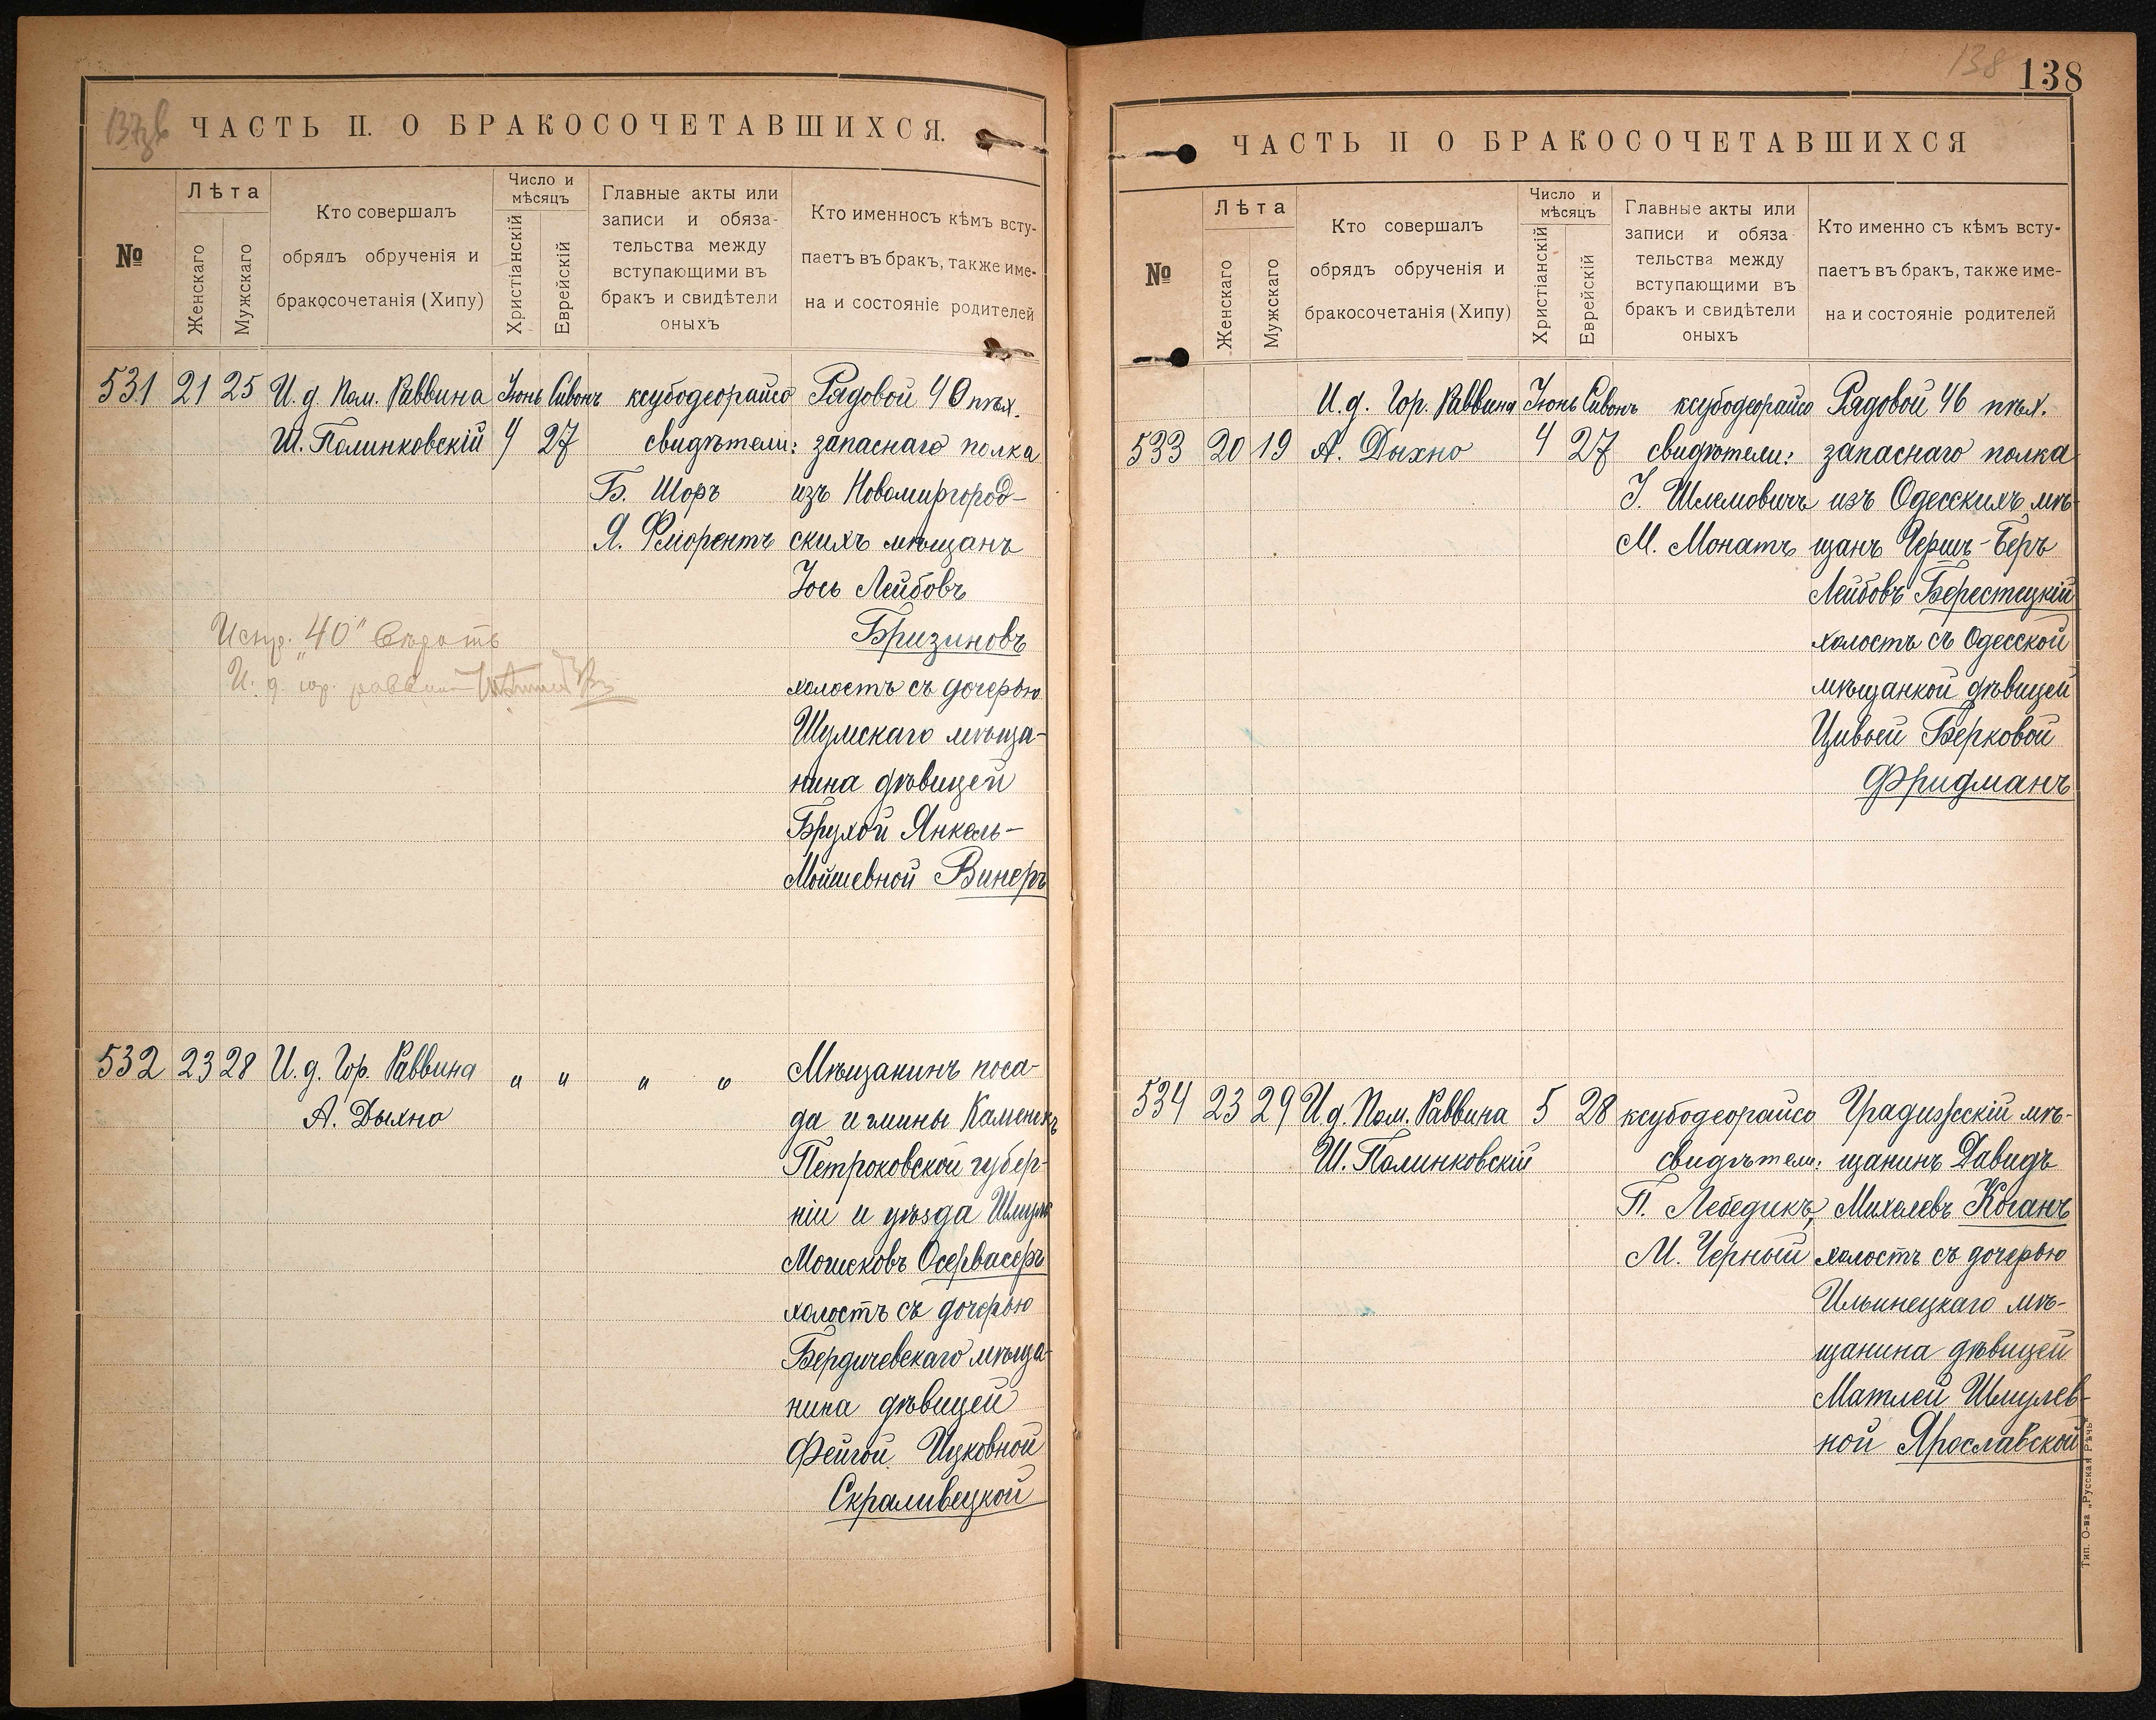 137 об
ЧАСТЬ II. О БРАКОСОЧЕТАВШИХСЯ.
№
Лѣта
Женскаго
Мужскаго
Кто совершалъ
обрядъ обрученія и
бракосочетанія (Хипу)
Число и
мѣсяцъ
Христіанскій
Еврейскій
Главные акты или
записи и обяза-
тельства между
вступающими въ
бракъ и свидѣтели
оныхъ
Кто именносъ кѣмъ всту-
паетъ въ бракъ, также име-
на и состояніе родителей
531 21 25 И. д. Пом. Раввина Іюнь Сивонъ ксубодеорайсо Рядовой 40 пѣх.
Ш. Полинковскій 4 27 свидѣтели: запаснаго полка
Б. Шоръ изъ Новомиргород-
Я. Фліорентъ скихъ мѣщанъ
Іось Лейбовъ
Бризиновъ
Испр. "40" вѣрить
И. д. гор. раввина
холостъ съ дочерью
Шумскаго мѣща-
нина дѣвицей
Брухой Янкель-
Мойшевной Винеръ
532 23 28 И. д. Гор. Раввина " " " " Мѣщанинъ поса-
А. Дыхно да и гмины Каменскъ
Петроковской губер-
ніи и уѣзда Шмуль
Мошековъ Осервасеръ
холостъ съ дочерью
Бердичевскаго мѣща-
нина дѣвицей
Фейгой Ицковной
Скраливецкой
138
138
ЧАСТЬ II О БРАКОСОЧЕТАВШИХСЯ
№
Лѣта
Женскаго
Мужскаго
Кто совершалъ
обрядъ обрученія и
бракосочетанія (Хипу)
Число и
мѣсяцъ
Христіанскій
Еврейскій
Главные акты или
записи и обяза
тельства между
вступающими въ
бракъ и свидѣтели
оныхъ
Кто именно съ кѣмъ всту-
паетъ въ бракъ, также име-
на и состояніе родителей
И. д. Гор. Раввина Іюнь Сивонъ ксубодеорайсо Рядовой 46 пѣх.
533 20 19 А. Дыхно 4 27 свидѣтели: запаснаго полка
І. Шлемовичъ изъ Одесскихъ мѣ-
М. Монатъ щанъ Гершъ-Беръ
Лейбовъ Берестецкій
холостъ съ Одесской
мѣщанкой дѣвицей
Цивьей Берковой
Фридманъ
534 23 29 И. д. Пом. Раввина 5 28 ксубодеорайсо Градизсскій мѣ-
Ш. Полинковскій свидѣтели: щанинъ Давидъ
П. Лебедикъ, Михелевъ Коганъ
М. Черный холостъ съ дочерью
Ильинецкаго мѣ-
щанина дѣвицей
Матлей Шмулев-
ной Ярославской
Тип. О-ва „Русская Рѣчь"